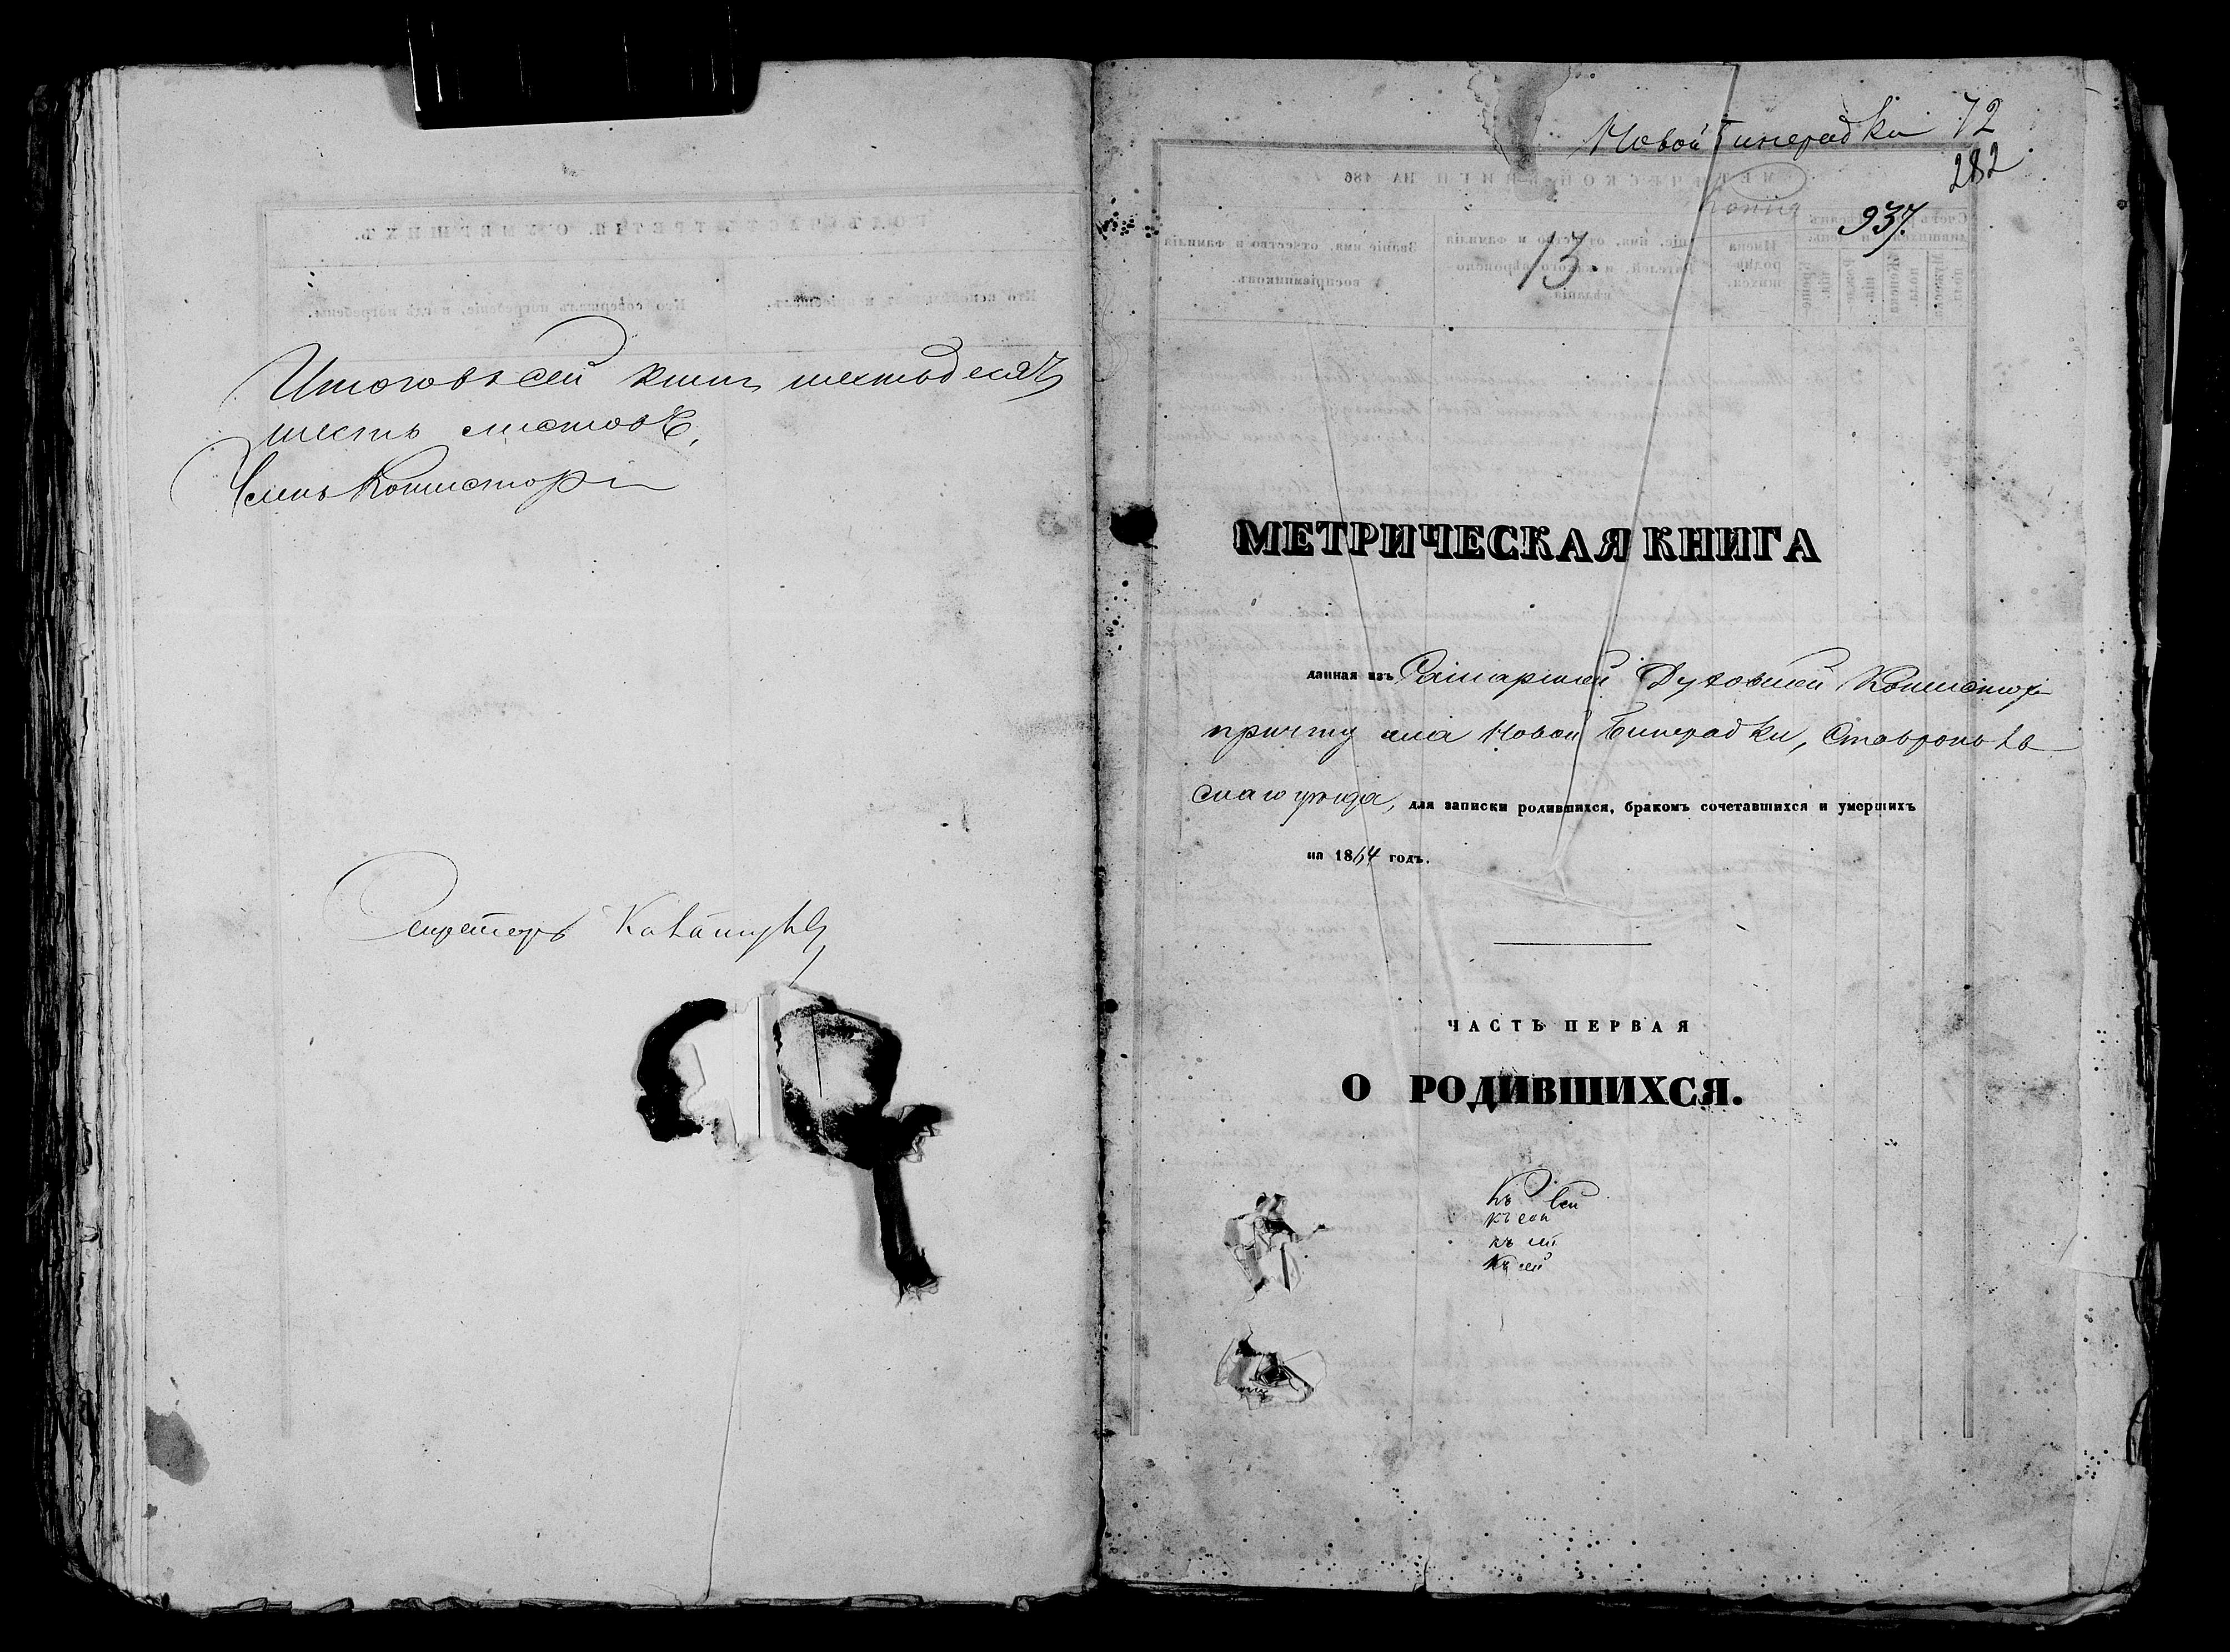 Итого въ сей книгѣ шестьдесятъ
шесть листовъ.
Членъ Консистори
Секретарь
Новой Бинарадки 72
282
копия
937.
13.
МЕТРИЧЕСКАЯ КНИГА
данная изъ Самарской Духовной Консисторі
причту села Новой Бинарадки, Ставрополь
скаго уѣзда, для записки родившихся, бракомъ сочетавшихся и умершихъ
на 1864 годъ.
ЧАСТЬ ПЕРВАЯ
О РОДИВШИХСЯ.
Къ сей
къ сей
къ сей
Къ сей